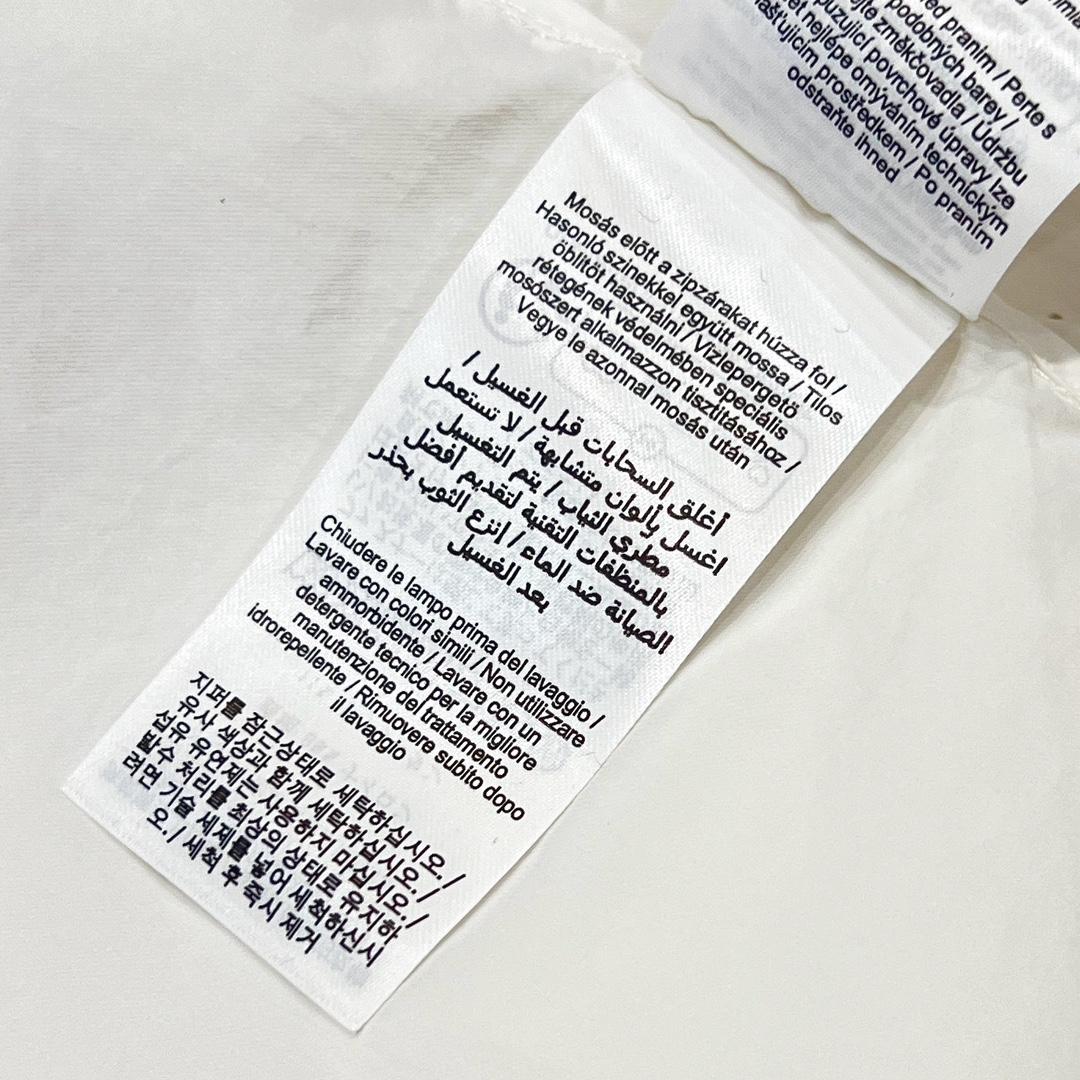 před praním / Perte s
podobných barev /
ejte změkčovadla / Údržbu
puzující povrchové úpravy lze
et nejlépe omýváním technickým
ašťujícím prostředkem / Po praním
odstraňte ihned
Mosás előtt a zipzárakat húzza fol /
Hasonló szinekkel együtt mossa / Tilos
öblítöt használni / Vizlepergetö
rétegének védelmében speciális
mosószert alkalmazzon tisztitásához /
Vegye le azonnal mosás után
أغلق السحابات قبل الغسيل /
اغسل بألوان متشابهة / لا تستعمل
مطري الثياب / يتم التغسيل
بالمنظفات التقنية لتقديم أفضل
الصيانة ضد الماء / انزع الثوب بحذر
بعد الغسيل
Chiudere le lampo prima del lavaggio /
Lavare con colori simili / Non utilizzare
ammorbidente / Lavare con un
detergente tecnico per la migliore
manutenzione del trattamento
idrorepellente / Rimuovere subito dopo
il lavaggio
지퍼를 잠근상태로 세탁하십시오. /
유사 색상과 함께 세탁하십시오. /
섬유 유연제는 사용하지 마십시오. /
발수 처리를 최상의 상태로 유지하
려면 기술 세제를 넣어 세척하신시
오. / 세척 후 즉시 제거